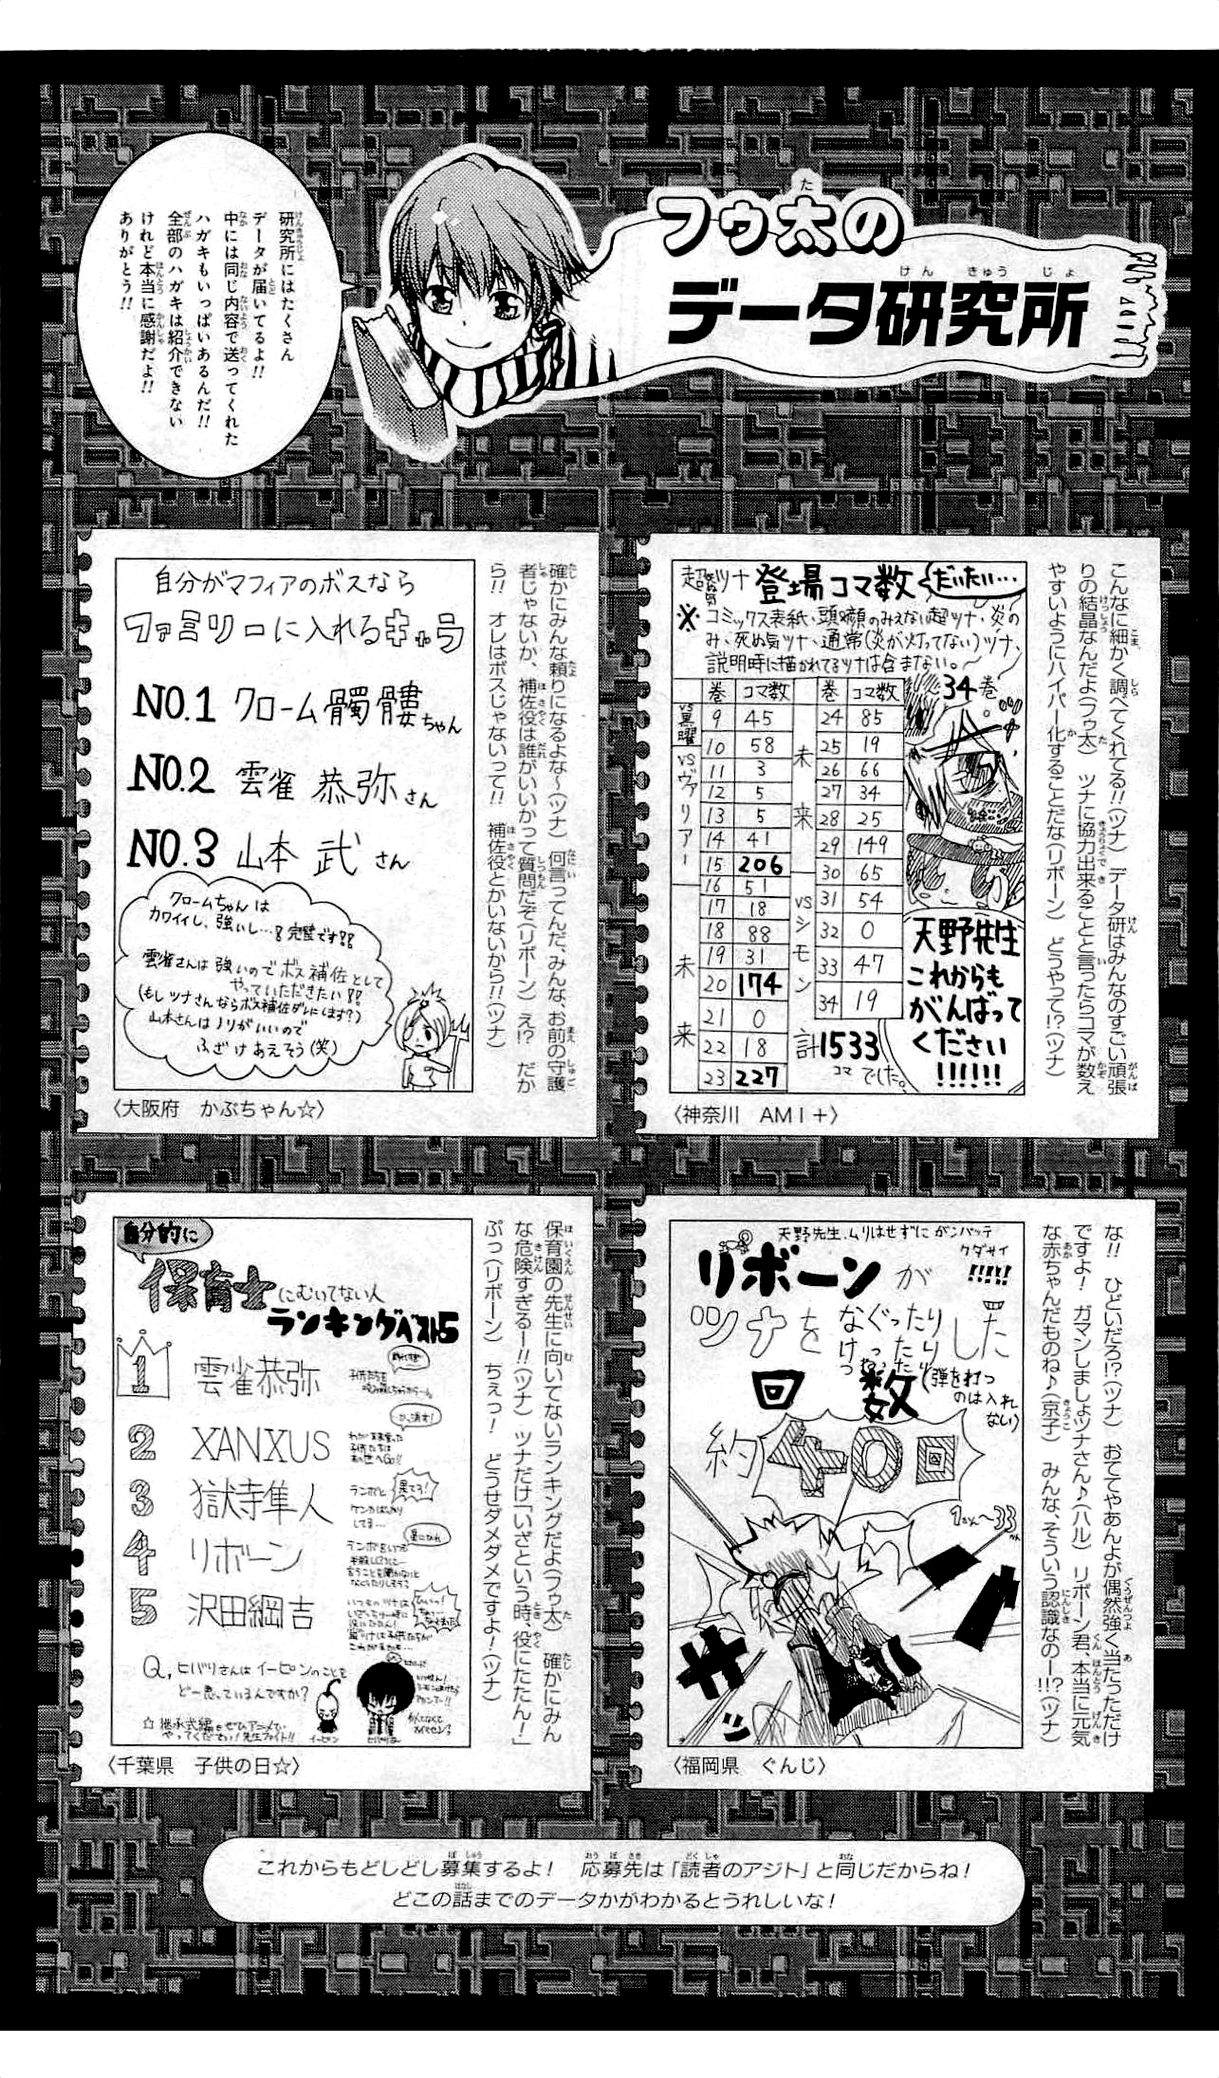 フゥ太の
データ研究所
研究所にはたくさん
データが届いてるよ!!
中には同じ内容で送ってくれた
ハガキもいっぱいあるんだ!!
全部のハガキは紹介できない
けれど本当に感謝だよ!!
ありがとう!!
超死ぬ気ツナ 登場コマ数 だいたい…
※コミックス表紙、頭や顔のみえない超ツナ、炎の
み、死ぬ気ツナ、通常(炎が灯ってない)ツナ、
説明時に描かれてるツナは含まない。
巻 コマ数 巻 コマ数
vs黒曜
9 45
10 58
vsヴァリアー
11 3
12 5
13 5
14 41
15 206
未来
16 51
17 18
18 88
19 31
20 174
21 0
22 18
23 227
未来
24 85
25 19
26 66
27 34
28 25
29 149
30 65
vsシモン
31 54
32 0
33 47
34 19
計1533コマでした。
34巻
天野先生
これからも
がんばって
ください
!!!!!!
〈神奈川 AMI+〉
こんなに細かく調べてくれてる!!(ツナ) データ研はみんなのすごい頑張
りの結晶なんだよ(フゥ太) ツナに協力出来ることと言ったらコマが数え
やすいようにハイパー化することだな(リボーン) どうやって!?(ツナ)
自分がマフィアのボスなら
ファミリーに入れるキャラ
NO.1 クローム髑髏ちゃん
NO.2 雲雀 恭弥さん
NO.3 山本 武さん
クロームちゃんは
カワイイし、強いし…!完璧です!!
雲雀さんは強いのでボス補佐として
やっていただきたい!!
(もしツナさんならボス補佐ダレにします?)
山本さんはノリがいいので
ふざけあえそう(笑)
〈大阪府 かぶちゃん☆〉
確かにみんな頼りになるよな～(ツナ) 何言ってんだ、みんな、お前の守護
者じゃないか、補佐役は誰がいいかって質問だぞ(リボーン) え!? だか
ら!! オレはボスじゃないって!! 補佐役とかいないから!!(ツナ)
天野先生、ムリはせずにガンバッテ
クダサイ
!!!!!
リボーンが
ツナをなぐったりけったりしたりした
回数(弾を打つ
のは入れ
ない)
約40回
〈福岡県 ぐんじ〉
な!! ひどいだろ!?(ツナ) おててやあんよが偶然強く当たっただけ
ですよ! ガマンしましょツナさん♪(ハル) リボーン君、本当に元気
な赤ちゃんだものね♪(京子) みんな、そういう認識なのー!!?(ツナ)
自分的に
保育士にむいてない人
ランキングベスト5
1 雲雀恭弥
2 XANXUS
3 獄寺隼人
4 リボーン
5 沢田綱吉
Q,ヒバリさんはイーピンのことを
どー思っているんですか?
☆継承式編もぜひアニメで
やってください!先生ファイト!!
イーピン
〈千葉県 子供の日☆〉
保育園の先生に向いてないランキングだよ(フゥ太) 確かにみん
な危険すぎるー!!(ツナ) ツナだけ「いざという時、役にたたん!」
ぷっ(リボーン) ちぇっ! どうせダメダメですよ!(ツナ)
これからもどしどし募集するよ! 応募先は「読者のアジト」と同じだからね!
どこの話までのデータかがわかるとうれしいな!